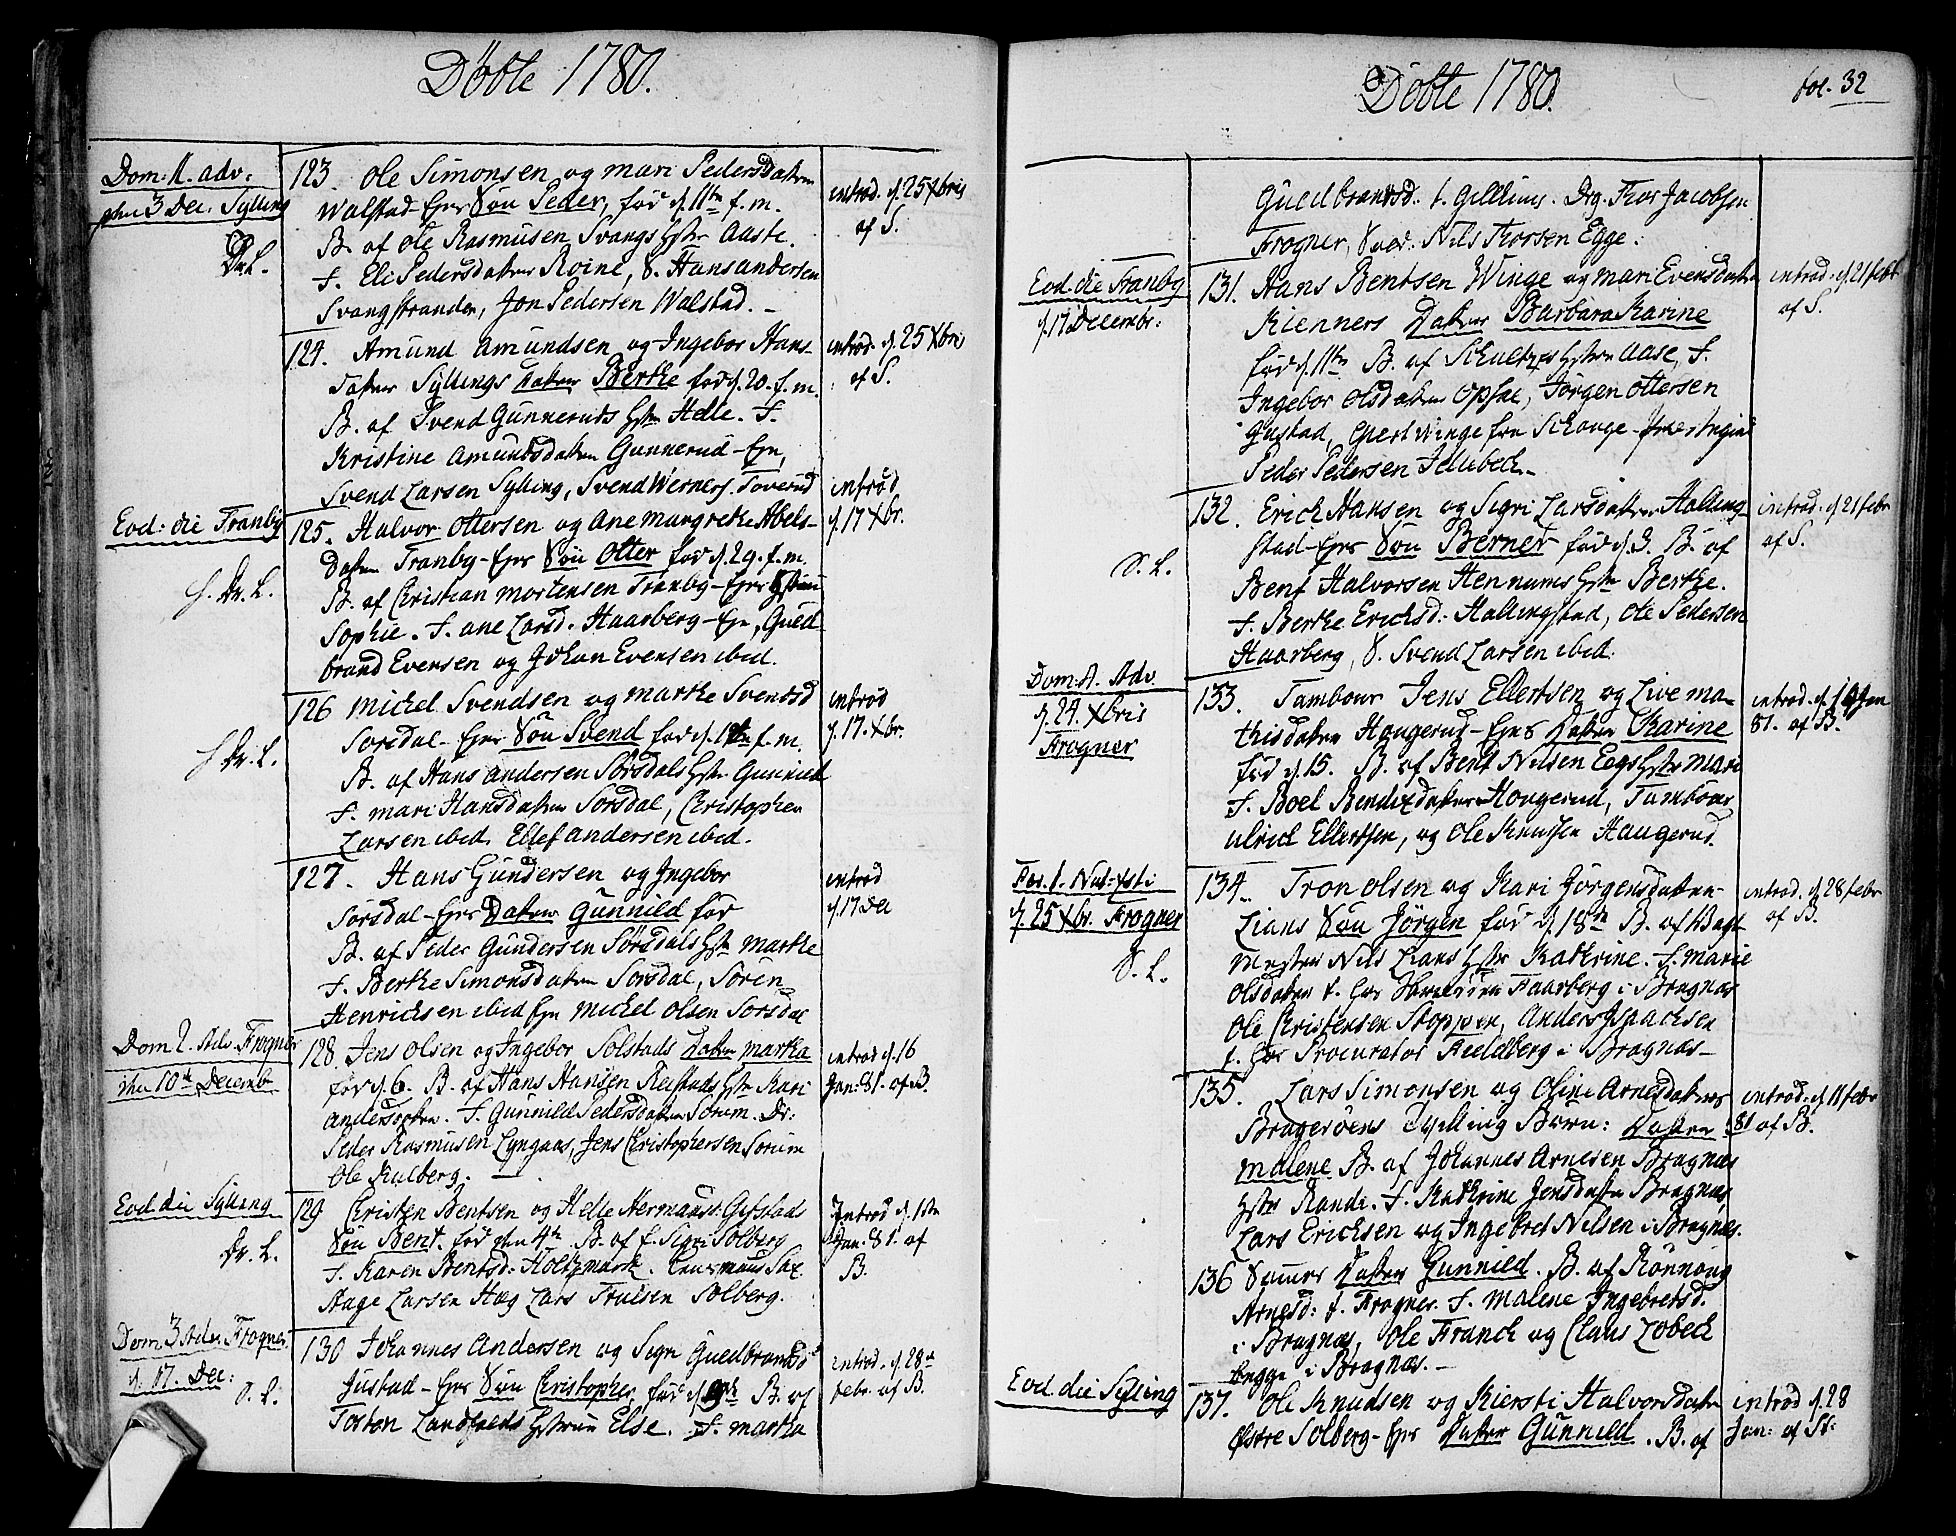 Döbte 1780.
Dom: II. adv.
dhn 3 Dec. Sylling
Dr. L.
123. Ole Simonsen og Mari Pedersdatter
Walstad - Søn Peder, fød d. 11te f. m.
B. af Ole Rasmusen Svangs Hstr Aaste.
F. Eli Pedersdatter Roine, S. Hans Andersen
Svangstranden, Jon Pedersen Walstad. -
introd. d. 25 Xbris
af S.
124. Amund Amundsen og Ingebor Hans-
datter Syllings Datter Berthe fød d. 20. f. m.
B. af Svend Gunneruds Hstr Helle. F.
Kristine Amundsdatter Gunnerud - Eje,
Svend Larsen Sylling, Svend Werners. Toverud
introd. d. 25 Xbris
af S.
Eod: die Tranby
Dr. L.
125. Halvor Ottersen og Ane Margrethe Abels-
datter Tranby - Ejes Søn Otter fød d. 29. f. m.
B. af Christian Mortensen Tranby - Ejes
Sophie. F. Ane Larsd. Haarberg - Eje, Gued-
brand Evensen og Johan Evensen ibid.
introd
d. 17 Xbr.
Dr. L.
126 Michel Svendsen og Marthe Svendsd
Sorsdal - Ejes Søn Svend fød d. f. m.
B. af Hans Andersen Sörsdals Hstr Gunnild
F. Mari Hansdatter Sorsdal, Christopher
Larsen ibid. Ellef Andersen ibid.
introd
d. 17. Xbr.
127. Hans Gundersen og Ingebor
Sörsdal - Ejes Datter Gunnild fød
B. af Peder Gundersen Sörsdals Hstr Marthe
F. Berthe Simonsdatter Sorsdal, Sören
Henrichsen ibid Eje Michel Olsen Sorsdal
introd
d. 17 Dec
Dom 2. Adv. Frogner
dhn 10de Decemb
128 Jens Olsen og Ingebor Solstads Datter Martha
fød d. 6. B. af Hans Hansen Reistads Hstr Kari
Andersdatter. F. Gunnild Pedersdatter Sorum. Dr:
Peder Rasmusen Lyngaas, Jens Christophersen Sorum
Ole Kulberg. -
introd d. 16
Jan: 81. af B.
Eod die Sylling
Dr. L.
129 Christen Bentsen og Helle Hermansd. Gifstads
Søn Bent. fød dhn 4de B. af f. Sigri Solberg
F. Karen Bentsd: Holtzmark.
Aage Larsen Hæg Lars Trulsen Solberg.
Introd d. 1ste
Jan: 81. af
B.
Dom 3 Adv. Frogner
d. 17. Dec:
S. L.
130 Johannes Andersen og Segri Guedbrandsd
Justad - Ejes Søn Christopher fød d. 9de B. af
Torsten Landfalds Hstruu Else. F. Martha
introd. d. 28de
febr. af B.
Döbte 1780.
fol. 32
Guedbrandsd. t. Gilhus. Drg. Thor Jacobsen
Frogner, Nils Thorsen Egge.
Eod. die Tranby
d. 17 Decembr:
131. Hans Bentsen Winge og Mari Evensdatter
Kienners Datter Barbara Karine
fød d. 11te B. af Schultzes Hstru Aase, F.
Ingebor Olsdatter Opsal, Jörgen Ottersen
Gustad, Gjert Winge fra Schouge
Peder Pedersen Jellebech -
introd. d. 21 febr
af S.
S. L.
132. Erich Hansen og Segri Larsdatter Halling-
stad - Ejes Søn Berner fød d. 9. B. af
Bent Halvorsen Hennums Hstr Berthe.
F. Berthe Ericksd: Hallingstad, Ole Pedersen
Haarberg, S. Svend Larsen ibid.
introd. d 21 febr
af S.
Dom 4. Adv.
d. 24. Xbris
Frogner
133. Tambour Jens Ellertsen og Live Ma-
thisdatter Haugerud - Ejes Datter Karine
fød d. 15. B. af Bent Nilsen Eegs Hstr Mari
F. Boel Bendixdatter Hougerud, Tambour
Ulrick Ellertsen, og Ole Knudsen Haugerud.
introd. d. Jan
81. af B.
Fer. 1. Nat. Xsti
d. 25 Xbr. Frogner
S. L.
134. Tron Olsen og Kari Jörgensdatter
Lians Søn Jörgen fød d. 18de B. af Vagt-
Mester Nils Lians Hstr Kathrine. F. Marie
Olsdatter t. hos Faarberg i Bragnæs
Ole Christensen Stoppen, Anders Isachsen
t. hos Procurator Heldberg i Bragnæs -
introd. d. 28 febr
af B.
135. Lars Simonsen og Oline Arnesdatters
Bragerøens Tvilling Børn: Datter
Malene B. af Johannes Arnesen Bragnæs
Hstr Randi. F. Kathrine Jensdatter Bragnæs,
Lars Ericksen og Ingebret Nilsen i Bragnæs.
introd. d 11 febr
81 af B.
136 Sames Datter Gunnild. B. af Rönnoug
Arnesd: t. Frogner. F. Malene Ingebretsd.
i Bragnæs, Ole Franck og Claus Lobeck
begge i Bragnæs. -
Eod. die Sylling
137. Ole Knudsen og Kiersti Halvorsdatter
Østre Solberg - Ejes Datter Gunnild. B. af
introd d. 28
Jan: af St: